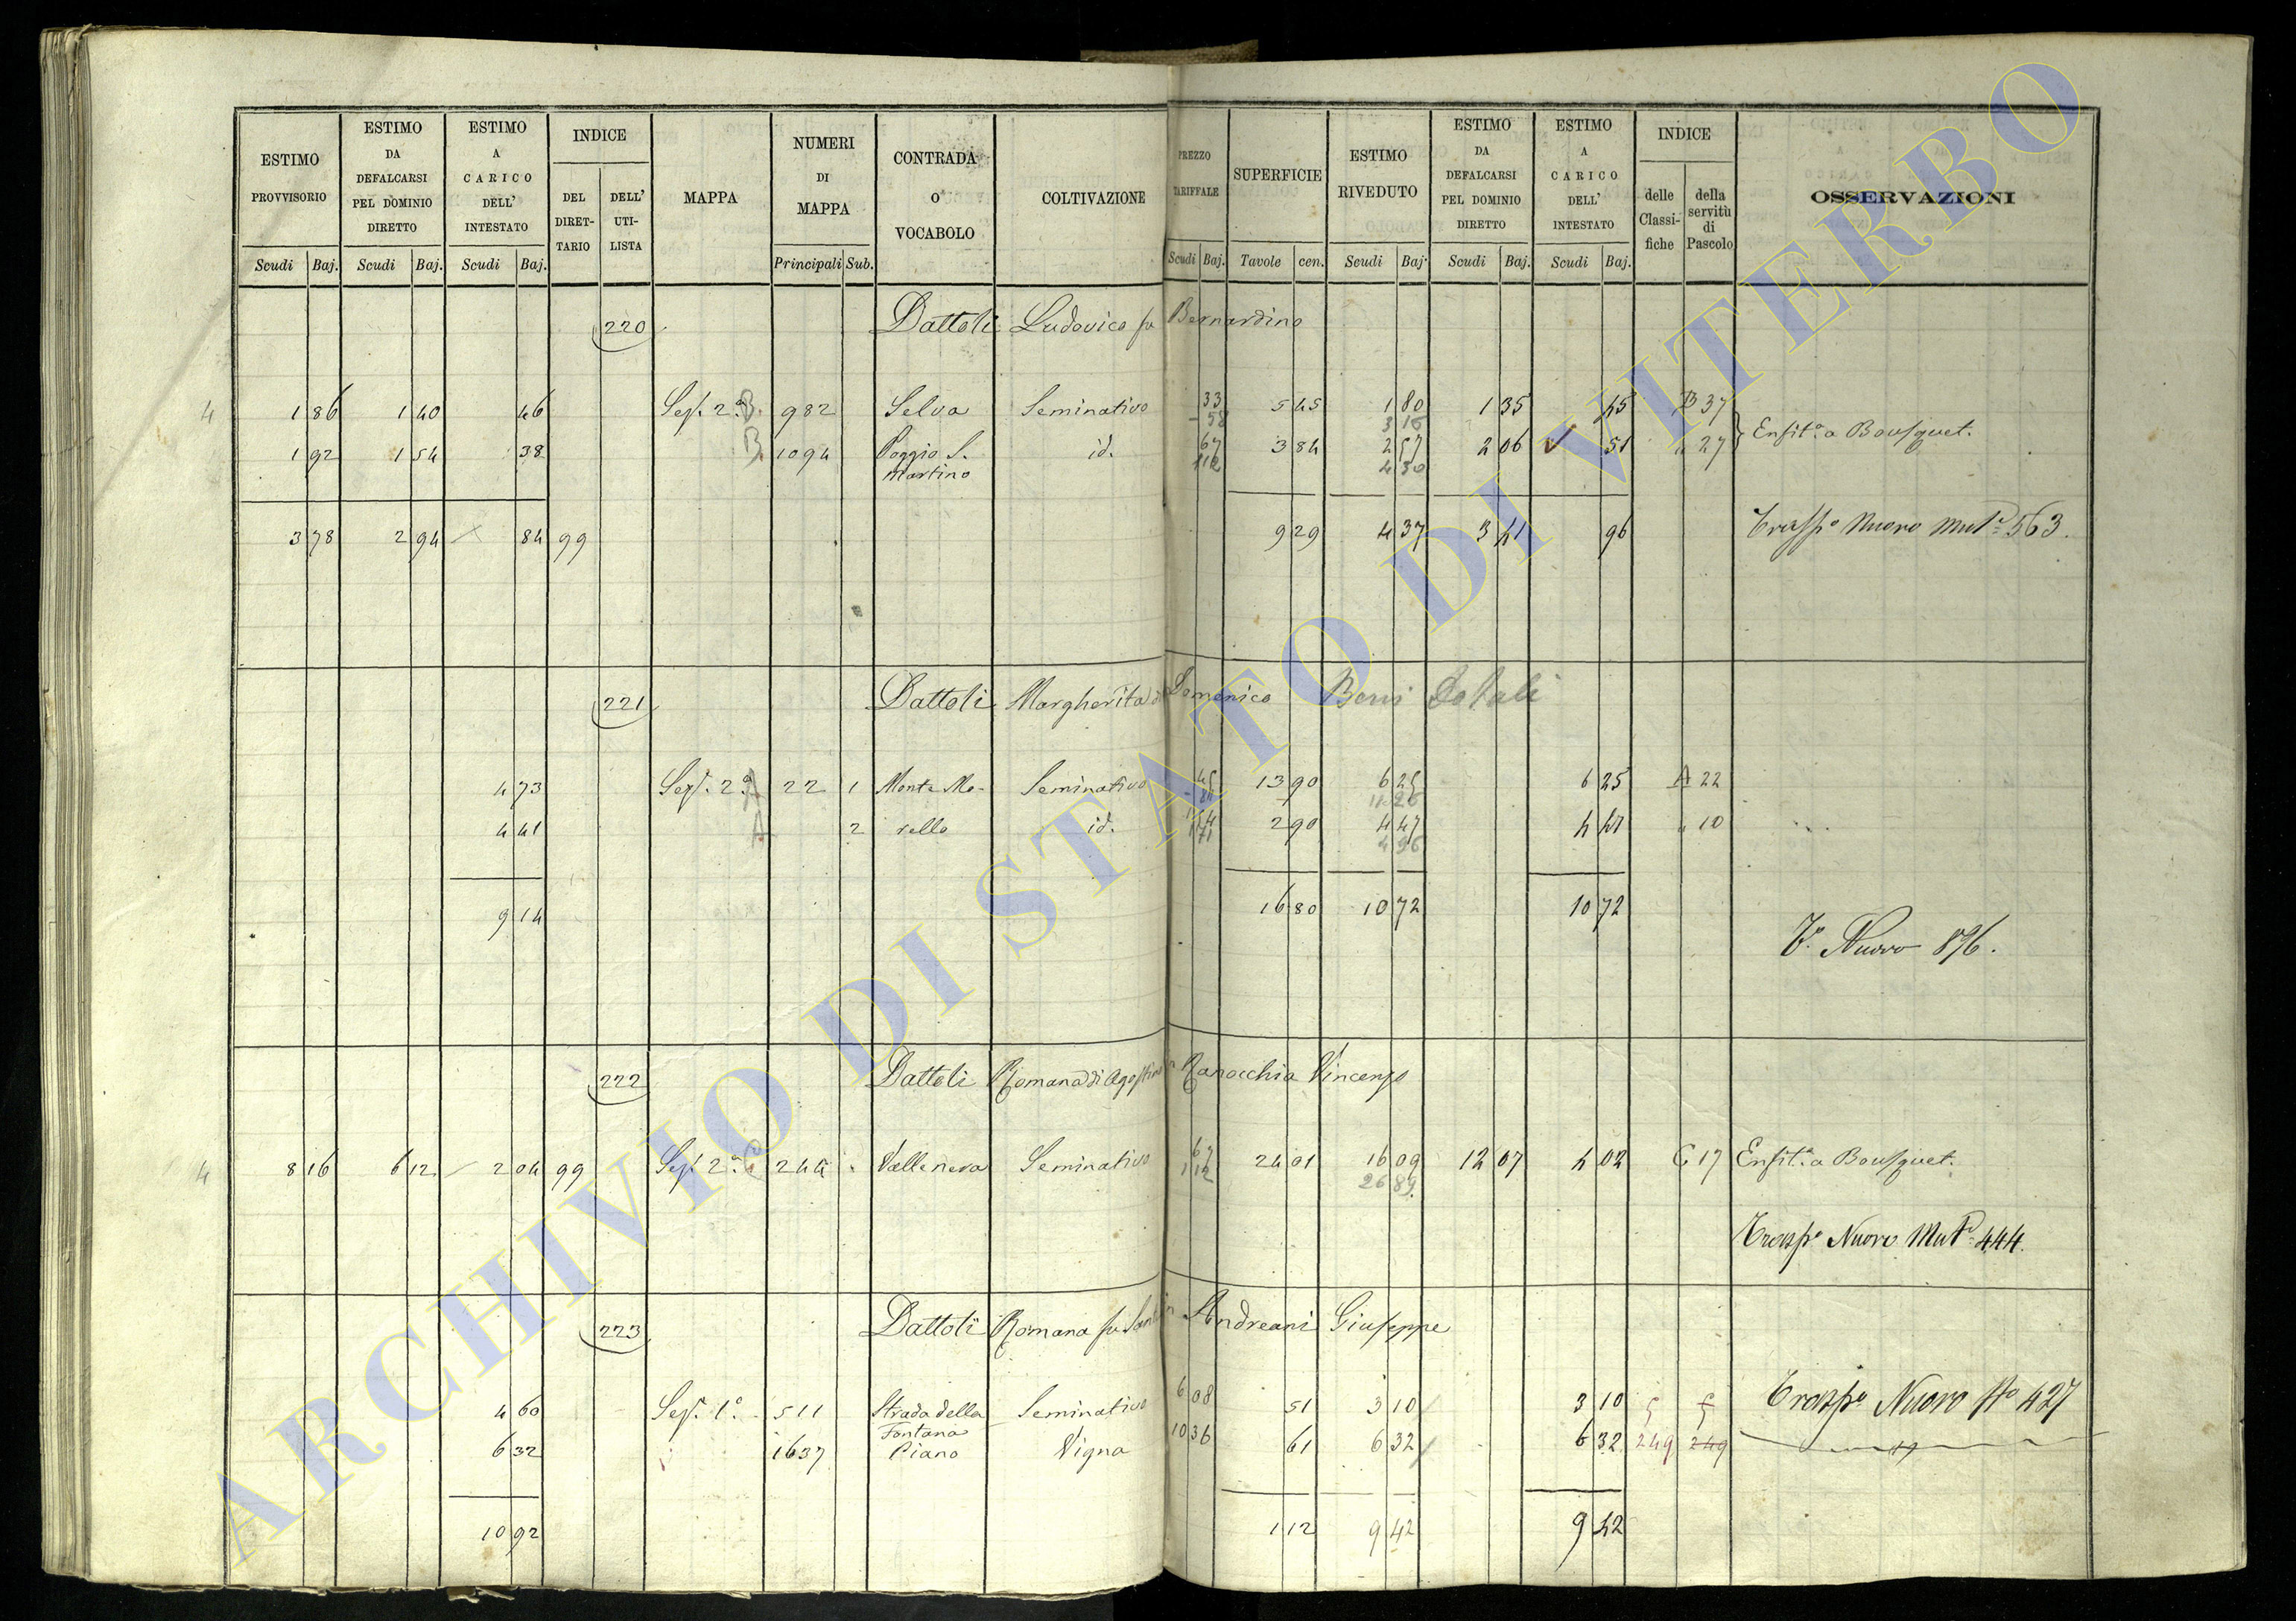 ESTIMO PROVVISORIO Scudi Baj.
ESTIMO DA DEFALCARSI PEL DOMINIO DIRETTO Scudi Baj.
ESTIMO A CARICO DELL' INTESTATO Scudi Baj.
INDICE DEL DIRET- TARIO DELL' UTI- LISTA
MAPPA
NUMERI DI MAPPA Principali Sub.
CONTRADA O VOCABOLO
COLTIVAZIONE
PREZZO TARIFFALE Scudi Baj.
SUPERFICIE Tavole cen.
ESTIMO RIVEDUTO Scudi Baj.
ESTIMO DA DEFALCARSI PEL DOMINIO DIRETTO Scudi Baj.
ESTIMO A CARICO DELL' INTESTATO Scudi Baj.
INDICE delle Classi- fiche della servitù di Pascolo
OSSERVAZIONI
220 Dattoli Ludovico fu Bernardino
4 1 86 1 40 46 Sez. 2ª B. 982 Selva Seminativo 33 5 45 1 80 1 35 45 B 37
58 3 16
1 92 1 54 38 B. 1094 Poggio S. id. 67 3 84 2 57 2 06 51 " 27 Enfit.ª a Bousquet.
Martino 112 4 30
3 78 2 94 84 99 9 29 4 37 3 41 96 Trasp.º Nuovo Mut.ª 563.
221 Dattoli Margherita di Domenico Beni Dotali
4 73 Sez. 2ª A 22 1 Monte Mo- Seminativo 45 13 90 6 25 6 25 A 22
81 11 26
4 41 A 2 rello id. 2 90 4 47 4 47 " 10
1 71 4 96
9 14 16 80 10 72 10 72
T.º Nuovo 896.
222 Dattoli Romana di Agostino in Ranocchia Vincenzo
4 8 16 6 12 2 04 99 Sez. 2ª C 244 Valle nera Seminativo 67 24 01 16 09 12 07 4 02 C 17 Enfit.ª a Bousquet.
1 12 26 89
Trasp.º Nuovo Mut.ª 444.
223 Dattoli Romana fu Santi in Andreani Giuseppe
4 60 Sez. 1ª 511 Strada della Seminativo 6 08 51 3 10 3 10 5 5 Trasp.º Nuovo Nº 427
Fontana
6 32 1637 Piano Vigna 10 36 61 6 32 6 32 249 249
10 92 1 12 9 42 9 42
ARCHIVIO DI STATO DI VITERBO